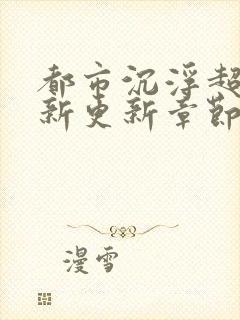 都市沉浮超
新更新章節
漫雪